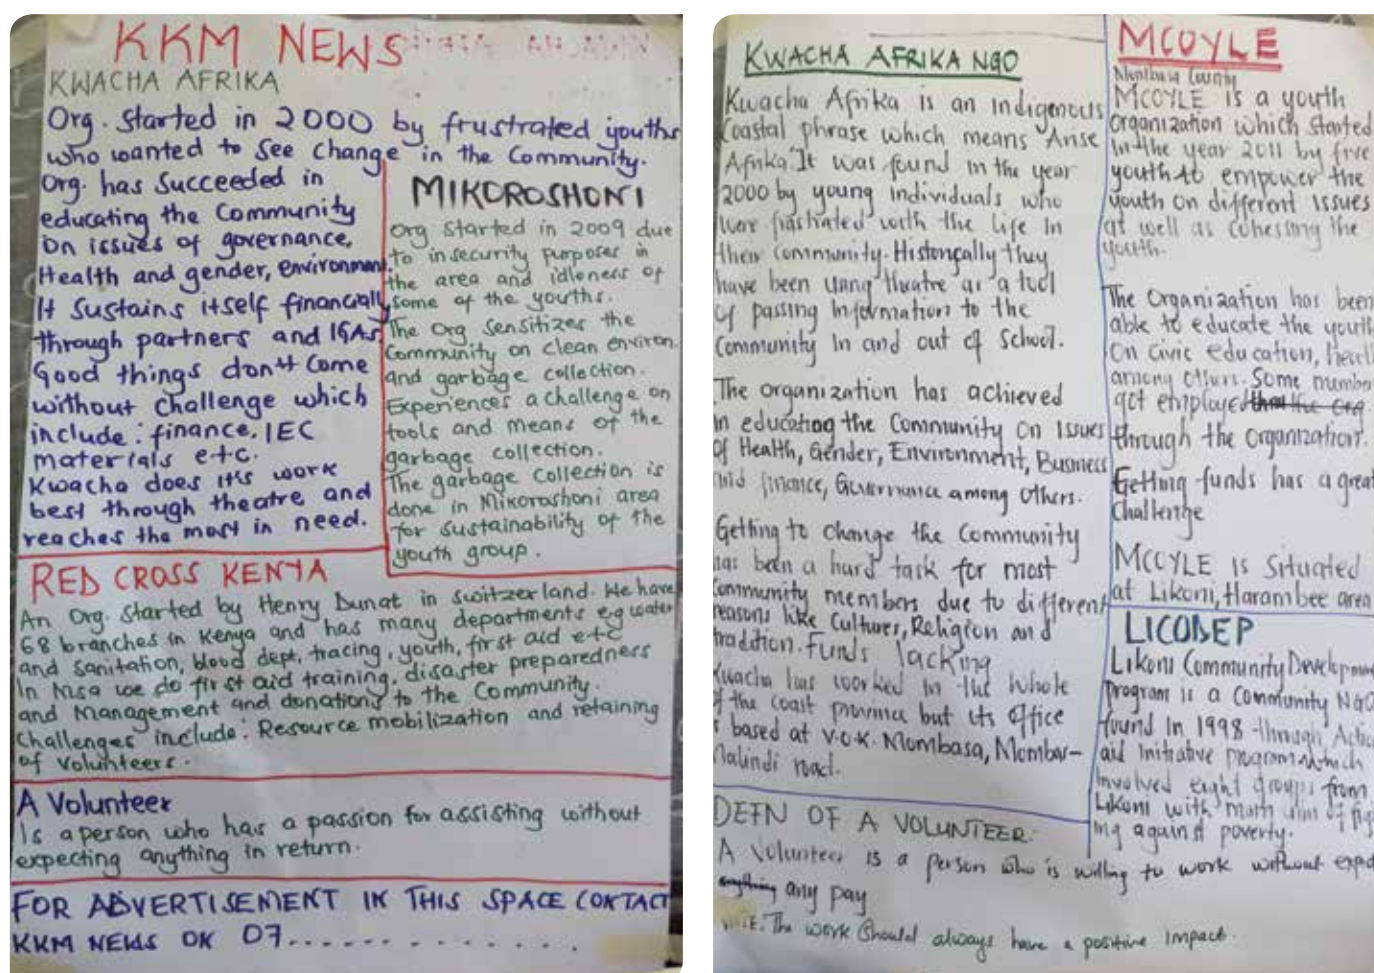 KKM NEWS
KWACHA AFRIKA
Org. Started in 2000 by frustrated youths
who wanted to see change in the Community.
Org. has Succeeded in
educating the Community
on issues of governance,
Health and gender, environment.
It Sustains itself financially
through partners and IGAs.
Good things don't Come
without Challenge which
include: finance, IEC
materials etc.
Kwacha does it's work
best through theatre and
reaches the most in need.
MIKOROSHONI
Org Started in 2009 due
to insecurity purposes in
the area and idleness of
some of the youths.
The Org Sensitizes the
Community on clean environ.
and garbage collection.
Experiences a challenge on
tools and means of the
garbage collection.
The garbage Collection is
done in Mikoroshoni area
for sustainability of the
youth group.
RED CROSS KENYA
An Org. started by Henry Dunat in switzerland. We have
68 branches in Kenya and has many departments e.g water
and sanitation, blood dept, tracing, youth, first aid etc
In Msa we do first aid training, disaster preparedness
and Management and donations to the Community.
Challenges include: Resource mobilization and retaining
of volunteers.
A Volunteer
Is a person who has a passion for assisting without
expecting anything in return.
FOR ADVERTISEMENT IN THIS SPACE CONTACT
KKM NEWS ON 07..............
KWACHA AFRIKA NGO
Kwacha Afrika is an Indigenous
Coastal phrase which means Arise
Afrika. It was found in the year
2000 by young individuals who
were frustrated with the Life In
their community. Historically they
have been using theatre as a tool
of passing Information to the
Community In and out of School.
The organization has achieved
In educating the Community On Issues
Of Health, Gender, Environment, Business
and finance, Governance among Others.
Getting to change the Community
has been a hard task for most
Community members due to different
reasons like Cultures, Religion and
tradition. Funds lacking
Kwacha has worked In the Whole
of the coast province but its Office
is based at V.O.K. Mombasa, Mombas-
Malindi road.
DEFN OF A VOLUNTEER:
A Volunteer is a person who is willing to work without
anything any pay
The work Should always have a positive Impact.
MCOYLE
Mombasa County
MCOYLE is a youth
Organization which Started
In the year 2011 by five
youth to empower the
youth on different Issues
as well as cohesing the
youth.
The Organization has been
able to educate the youth
On Civic education,
among Others. Some
got employed
through the Organization.
Getting funds has a great
Challenge
MCOYLE is Situated
at Likoni, Harambee area
LICODEP
Likoni Community Development
Program is a Community NGO
found In 1998 through Action
aid Initiative program which
Involved eight groups from
Likoni with main aim of
ing against poverty.